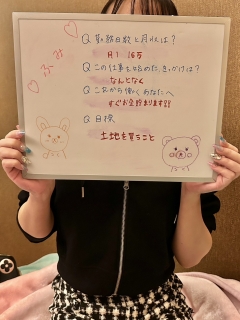 ふみ
Q 勤務日数と月収は？
月1 16万
Q この仕事を始めた、きっかけは？
なんとなく
Q これから働くあなたへ
すぐお金貯まります!!
Q 目標
土地を買うこと